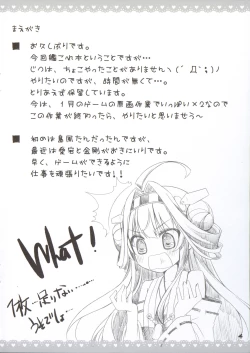 まえがき
■ お久しぶりです。
今回艦これ本ということですが…
じつは、ちょこやったことがありません＼(´Д`;)ノ
やりたいのですが、時間が無くて…。
とりあえず保留しています。
今は、1月のゲームの原画作業でいっぱい×2なので
この作業が終わったら、やりたいと思いまぅ～
■ 初めは島風たんだったんですが、
最近は愛宕と金剛がおきにいりです。
早く、ゲームができるように
仕事を頑張りたいです！！
What!
1枚足りない……
うそでしょ…